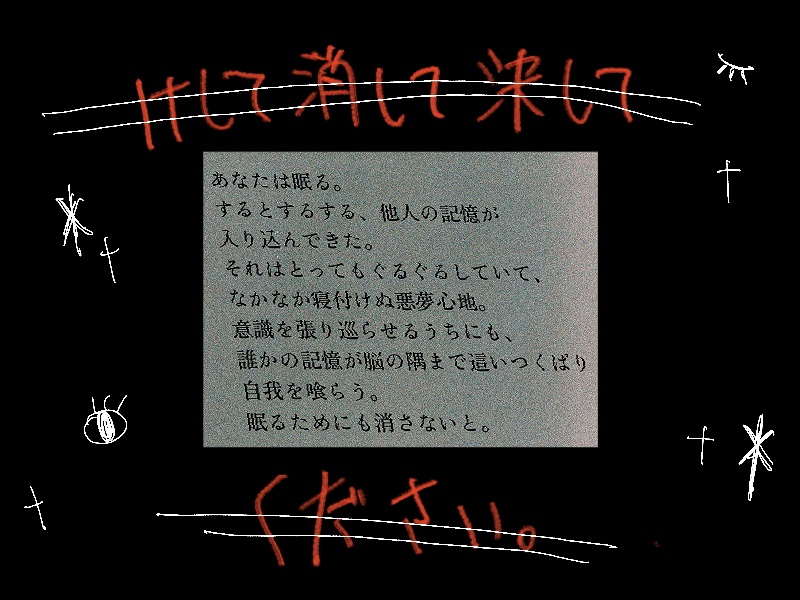 けして消して染して
あなたは眠る。
するとするする、他人の記憶が
入り込んできた。
それはとってもぐるぐるしていて、
なかなか寝付けぬ悪夢心地。
意識を張り巡らせるうちにも、
誰かの記憶が脳の隅まで這いつくばり
自我を喰らう。
眠るためにも消さないと。
ください。